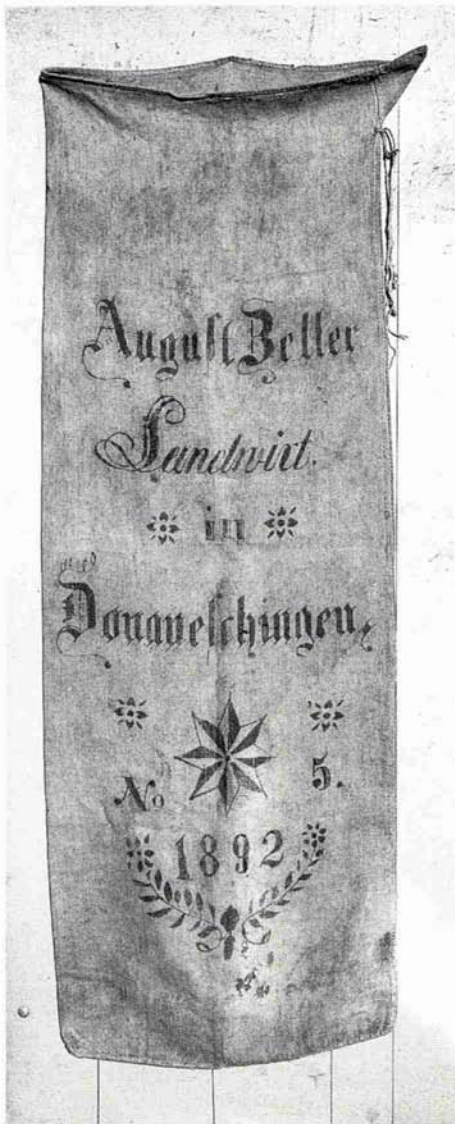 August Zeller
Landwirt.
in
Donaueschingen,
No 5.
1892